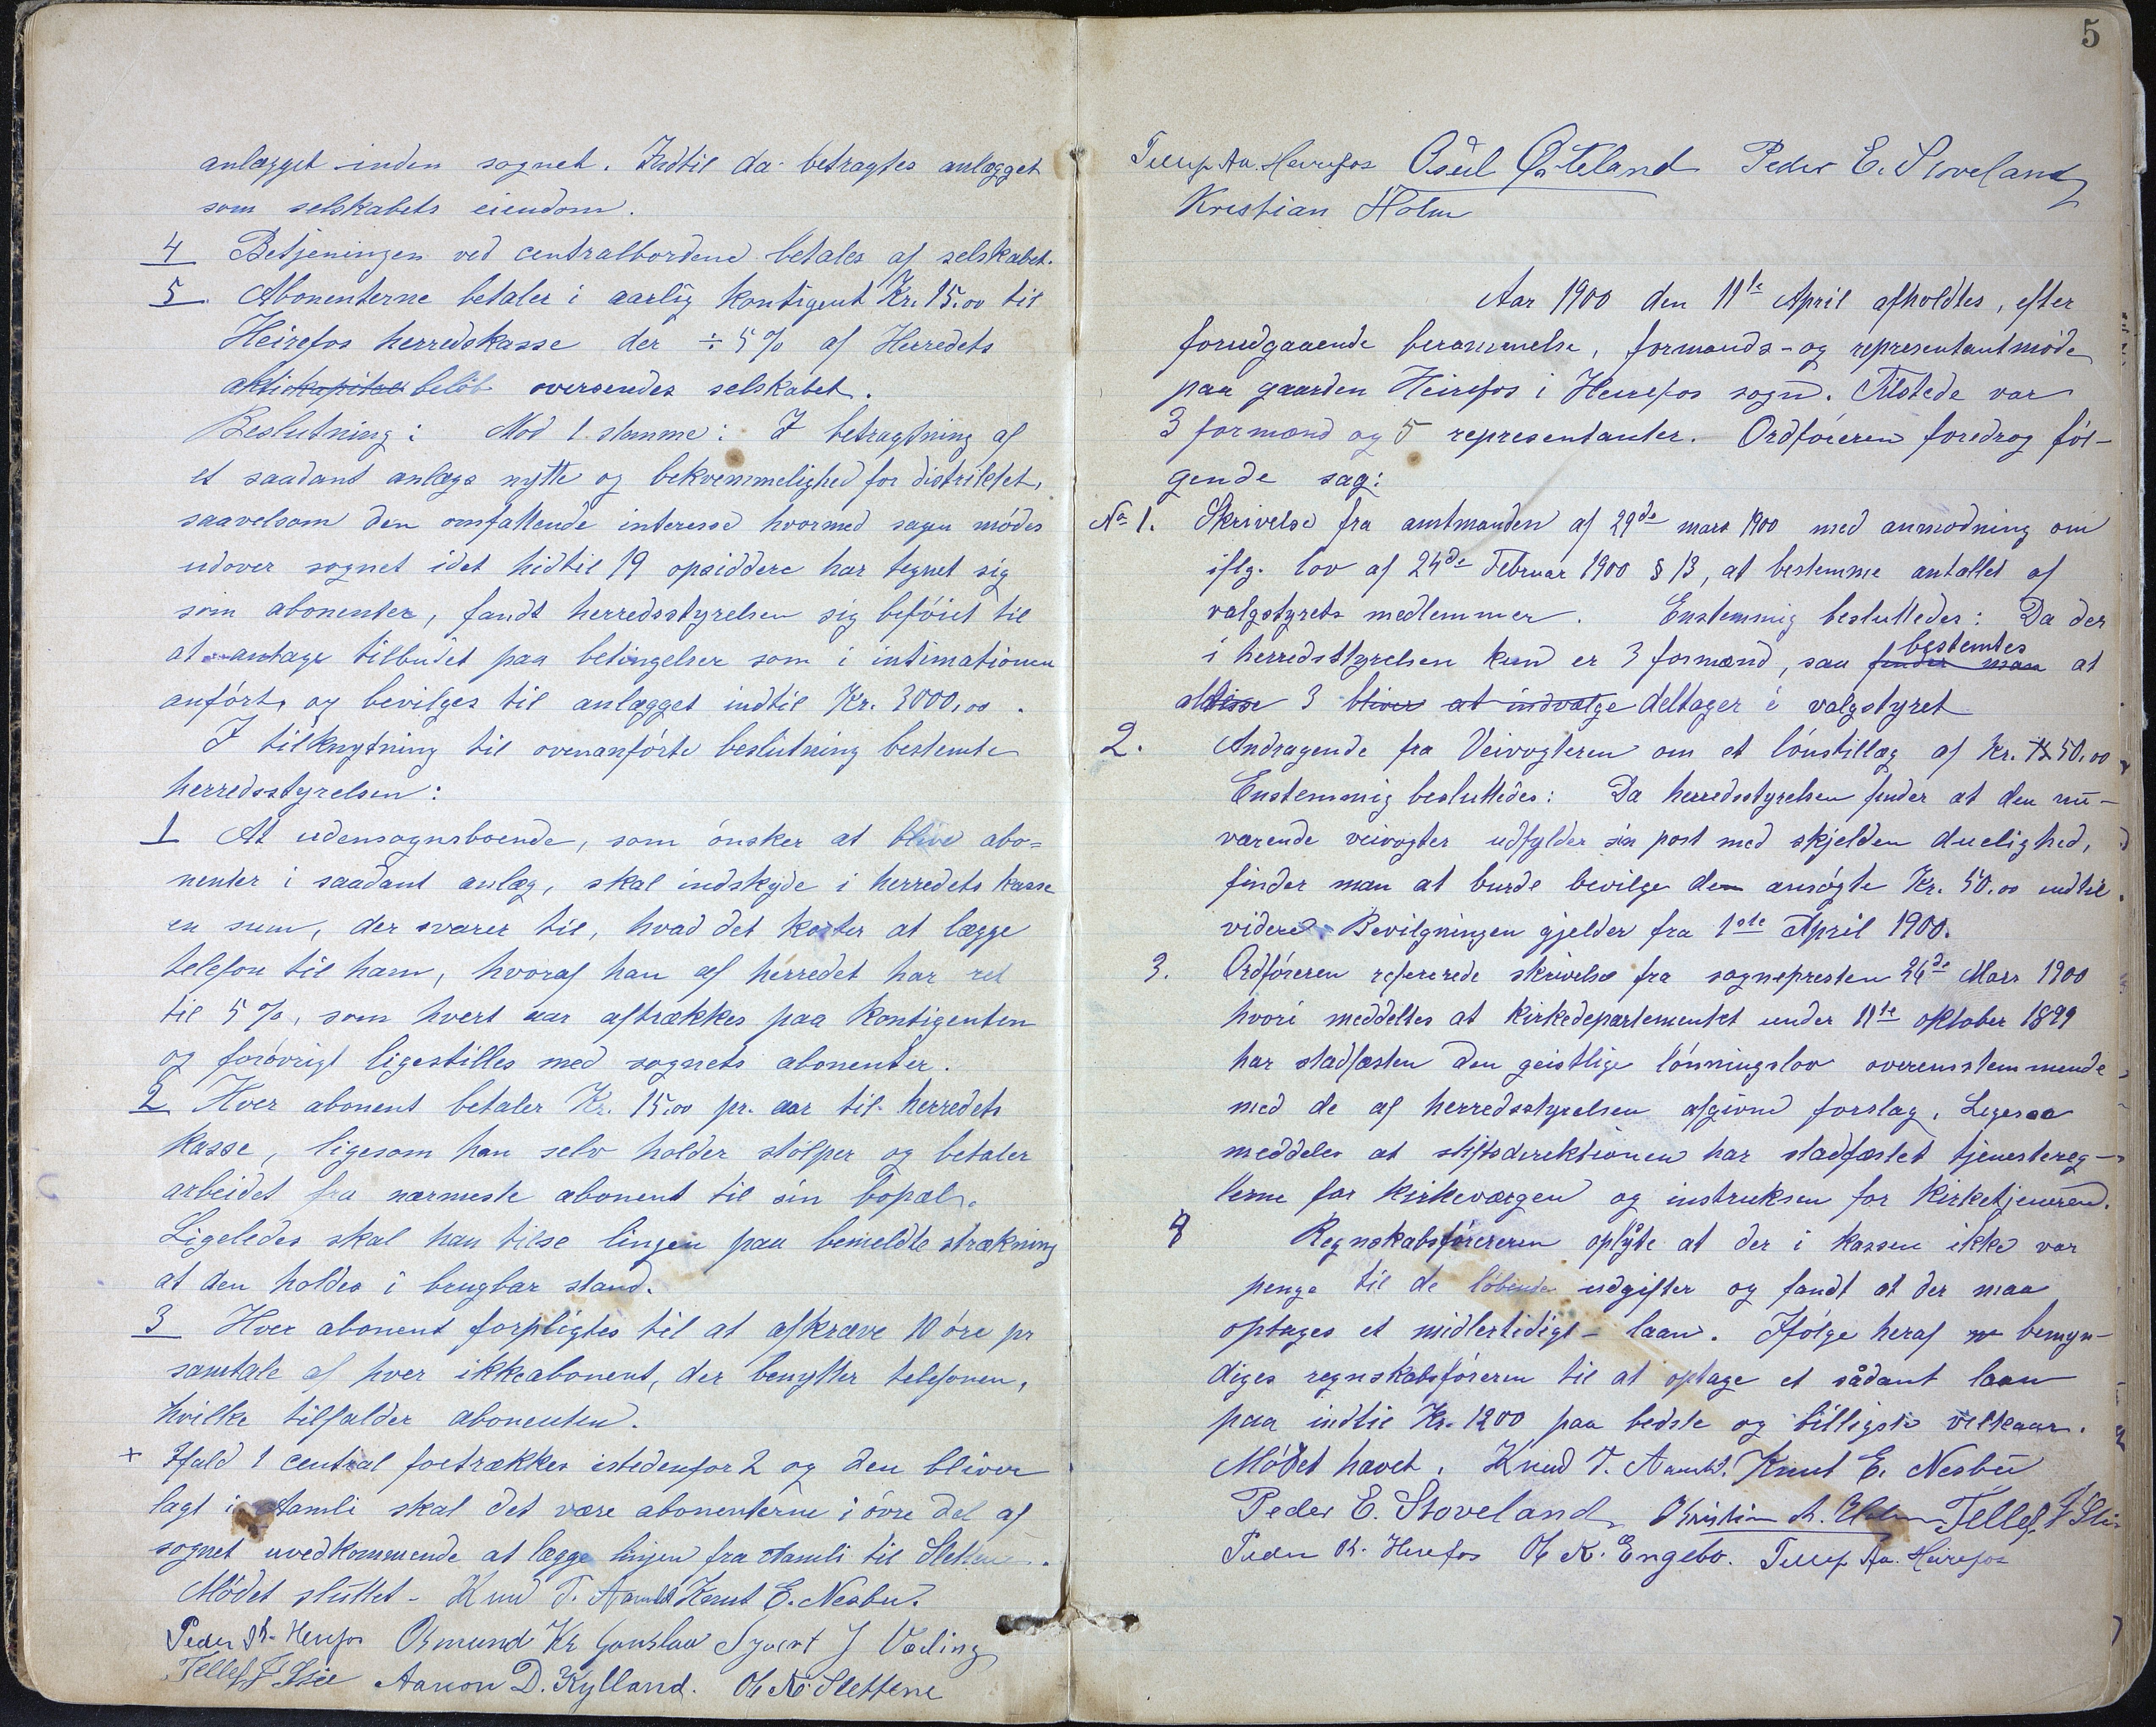 anlægget inden sognet. Indtil da betragtes anlægget
som selskabets eiendom.
4 Betjeningen ved centralbordene betales af selskabet.
5. Abonenterne betaler i aarlig kontigent Kr. 15.00 til
Heirefos herredskasse der ÷ 5 % af Herredets
aktiekapital beløb oversendes selskabet.
Beslutning: Mod 1 stemme: I betragtning af
et saadant anlægs nytte og bekvemmelighed for distriktet,
saavelsom den omfattende interesse hvormed sagen mødes
udover sognet idet hidtil 19 opsiddere har tegnet sig
som abonenter, fandt herredsstyrelsen sig beføiet til
at antage tilbudet paa betingelser som i intimationen
anført, og bevilges til anlægget indtil Kr. 3000,00.
I tilknytning til ovenanførte beslutning bestemte
herredsstyrelsen:
1 At udensognsboende, som ønsker at blive abo=
nenter i saadant anlæg, skal indskyde i herredets kasse
en sum, der svarer til, hvad det koster at lægge
telefon til ham, hvoraf han af herredet har ret
til 5 %, som hvert aar aftrækkes paa kontigenten
og forøvrigt ligestilles med sognets abonenter.
2 Hver abonent betaler Kr. 15.00 pr. aar til herredets
kasse, ligesom han selv holder stolper og betaler
arbeidet fra nærmeste abonent til sin bopæl.
Ligeledes skal han tilse linjen paa bemeldte strækning
at den holdes i brugbar stand.
3 Hver abonent forpligtes til at afkræve 10 øre pr
samtale af hver ikkeabonent, der benytter telefonen,
hvilke tilfalder abonenten.
+ Ifald 1 central foretrækkes istedenfor 2 og den bliver
lagt i Aamli skal det være abonenterne i øvre del af
sognet uvedkommende at lægge linjen fra Aamli til Slettene.
Mødet sluttet - Knud T. Aamli Knut E. Nesbu.
Peder Kr. Herefos Osmund Kr Gauslaa Syvert J Væting
Tellef J Lie Aanon D. Kylland. Ole N. Slettene
5
Tellef Aa. Heirefos Osuld Ø. Teland Peder E. Stoveland
Kristian Holm
Aar 1900 den 11te April afholdtes, efter
forudgaaende berammelse, formands- og representantmøde
paa gaarden Heirefos i Heirefos sogn. Tilstede var
3 formænd og 5 representanter. Ordføreren foredrog føl-
gende sag:
No 1. Skrivelse fra amtmanden af 29de mars 1900 med anmodning om
iflg. lov af 24de Februar 1900 § 13, at bestemme antallet af
valgstyrets medlemmer. Enstemmig besluttedes: Da der
i herredsstyrelsen kun er 3 formænd, saa finder man bestemtes at
disse 3 bliver at indvælge deltager i valgstyret
2. Andragende fra Veivogteren om et lønstillæg af Kr. 50,00
Enstemmig besluttedes: Da herredsstyrelsen finder at den nu-
værende veivogter udfylder sin post med skjelden duelighed,
finder man at burde bevilge den ansøgte Kr. 50.00 indtil
videre. Bevilgningen gjelder fra 1ste April 1900.
3. Ordføreren refererede skrivelse fra sognepresten 26de Mars 1900
hvori meddeltes at kirkedepartementet under 11te oktober 1899
har stadfæsten den geistlige lønningslov overensstemmende
med de af herredsstyrelsen afgivne forslag. Ligesaa
meddeles at stiftsdirektionen har stadfæstet tjenestereg-
lerne for kirkeværgen og instruksen for kirketjeneren.
4 Regnskabsføreren oplyste at der i kassen ikke var
penge til de løbende udgifter og fandt at der maa
optages et midlertidigt laan. Ifølge heraf bemyn-
diges regnskabsføreren til at optage et sådant laan
paa indtil Kr. 1200 paa bedste og billigste vilkaar.
Mødet hævet. Knud T. Aamli. Knut E. Nesbu
Peder E. Stoveland Kristian A. Holm Tellef J Lie
Peder Kr. Herefos Ole K. Engebo. Tellef Aa. Heirefos